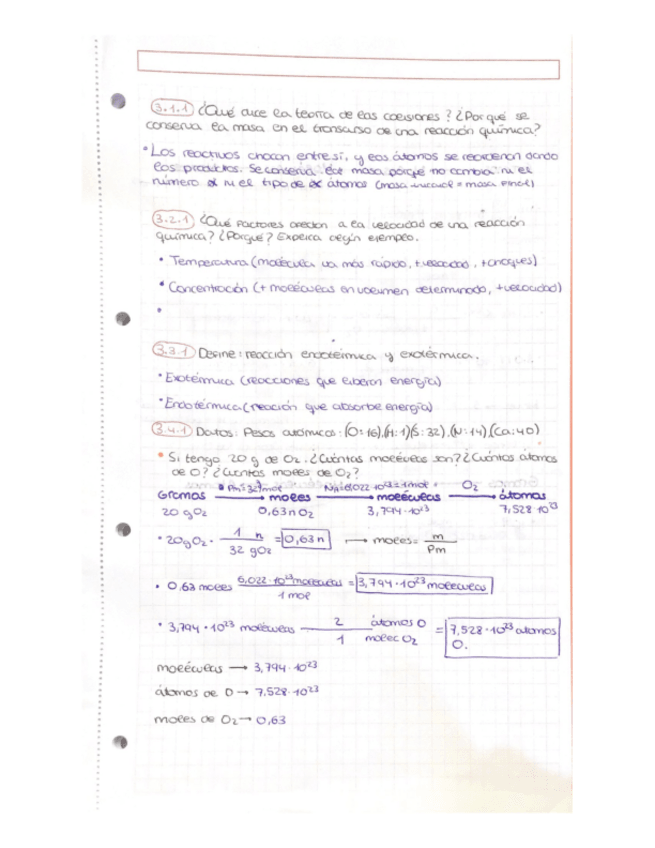 3.1.1 ¿Qué dice la teoría de las colisiones? ¿Por qué se
conserva la masa en el transcurso de una reacción química?
• Los reactivos chocan entre sí, y los átomos se reordenan dando
los productos. Se conserva la masa porque no cambia ni el
número ni el tipo de átomos (masa inicial = masa final)
3.2.1 ¿Qué factores afectan a la velocidad de una reacción
química? ¿Por qué? Explica según ejemplo.
• Temperatura (molécula va más rápido, + velocidad, + choques)
• Concentración (+ moléculas en volumen determinado, + velocidad)
•
3.3.1 Define: reacción endotérmica y exotérmica.
• Exotérmica (reacciones que liberan energía)
• Endotérmica (reación que absorbe energía)
3.4.1 Datos: Pesos atómicos: (O:16), (H:1) (S:32), (N:14), (Ca:40)
• Si tengo 20 g de O₂. ¿Cuántas moléculas son? ¿Cuántos átomos
de O? ¿Cuántos moles de O₂?
Pm = 32 g/mol NA = 6,022·10²³ = 1 mol O₂
Gramos → moles → moléculas → átomos
20 g O₂ 0,63 n O₂ 3,794·10²³ 7,528·10²³
• 20 g O₂ · 1 n / 32 g O₂ = 0,63 n → moles = m / Pm
• 0,63 moles 6,022·10²³ moléculas / 1 mol = 3,794·10²³ moléculas
• 3,794·10²³ moléculas 2 átomos O / 1 molec O₂ = 7,528·10²³ átomos
O.
moléculas → 3,794·10²³
átomos de O → 7,528·10²³
moles de O₂ → 0,63